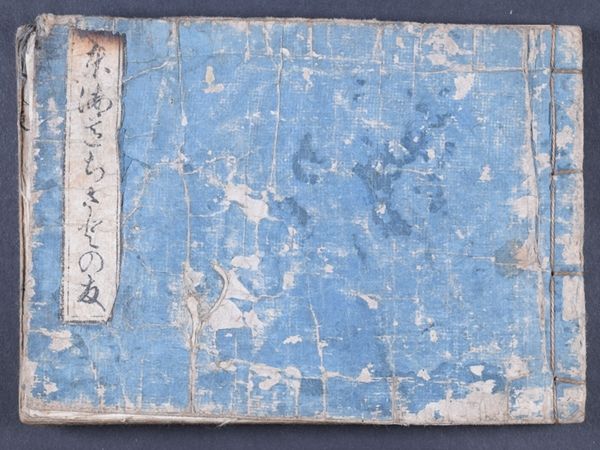 東海道ちさとの友